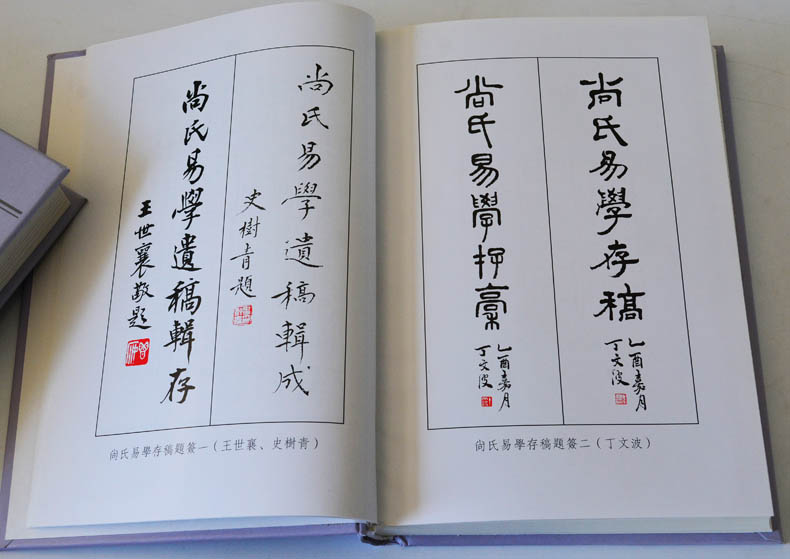 尚氏易學遺稿輯成
史樹青題
尚氏易學遺稿輯存
王世襄敬題
尚氏易學存稿題簽一（王世襄、史樹青）
尚氏易學存稿
乙酉嘉月
丁文波
尚氏易學存稾
乙酉嘉月
丁文波
尚氏易學存稿題簽二（丁文波）